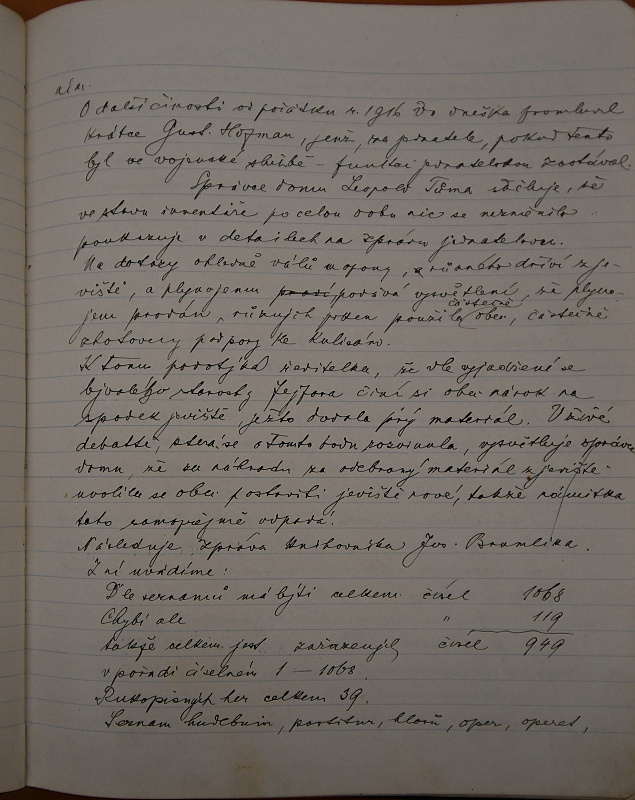 O další činosti od počátku r. 1916 do dneška promluvil
krátce Gust. Hofman, jenž, za jednatele, pokud tento
byl ve vojenské službě – funkci jednatelskou zastával.
Správce domu Leopold Tůma sděluje, že
ve stavu inventáře po celou dobu nic se nezměnilo
poukazuje v detailech na zprávu jednatelovu.
Na dotazy ohledně válů u opony, a různého dříví z je-
viště, a plynojemu prací podává vysvětlení, že plyno-
jem prodán, různých prken použila částečně obec, částečně
zhotoveny podpory ke kulisám.
K tomu podotýká ředitelka, že dle vyjádření se
bývalého starosty Fejfara činí si obec nárok na
spodek jeviště ježto dodala prý materiál. V živé
debattě, která se o tomto bodu rozvinula, vysvětluje správce
domu, že za náhradu za odebraný materiál z jeviště
uvolila se obec postaviti jeviště nové, takže námitka
tato samozřejmě odpadá.
Následuje zpráva knihovníka Jos. Bramlika.
Z ní uvádíme:
Dle seznamů má býti celkem čísel 1068
Chybí ale " 119
takže celkem jest zařazených čísel 949
v pořadí číselném 1 – 1068.
Rukopisných her celkem 39.
Seznam hudebnin, partitur, hlasů, oper, operet,